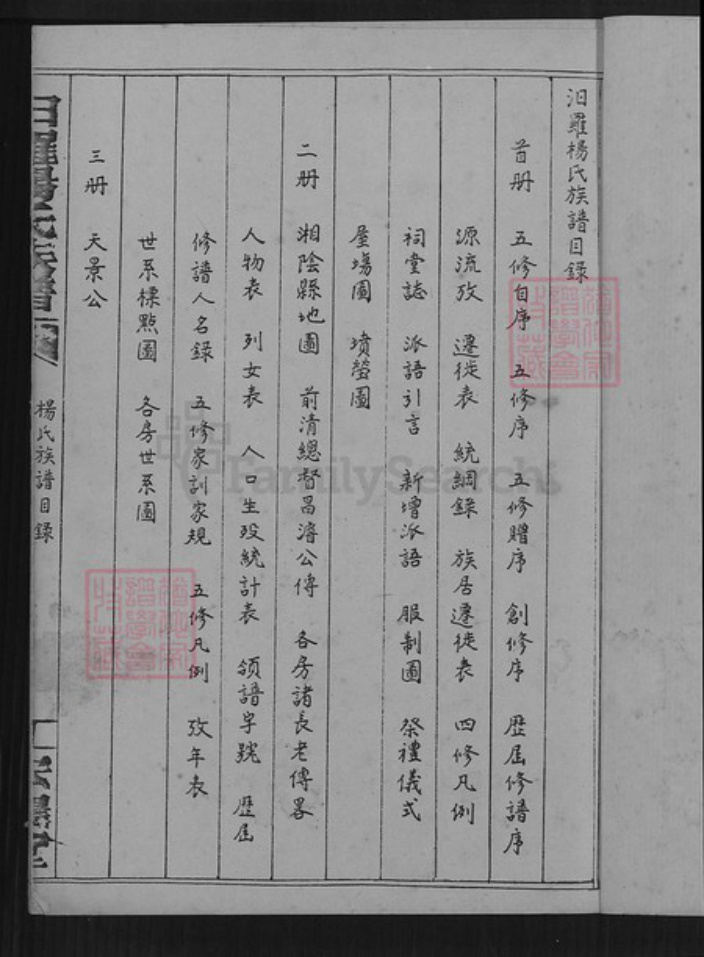 汨羅楊氏族譜目錄
首册 五修自序 五修序 五修贈序 創修序 歷屆修譜序
源流攷 遷徙表 統綱錄 族居遷徙表 四修凡例
祠堂誌 派語引言 新增派語 服制圖 祭禮儀式
屋塲圖 墳塋圖
二册 湘陰縣地圖 前清總督昌濬公傳 各房諸長老傳畧
人物表 列女表 人口生歿統計表 領譜字號 歷屆
修譜人名錄 五修家訓家規 五修凡例 攷年表
世系標點圖 各房世系圖
三册 天景公
汨羅楊氏族譜
楊氏族譜目錄
FamilySearch